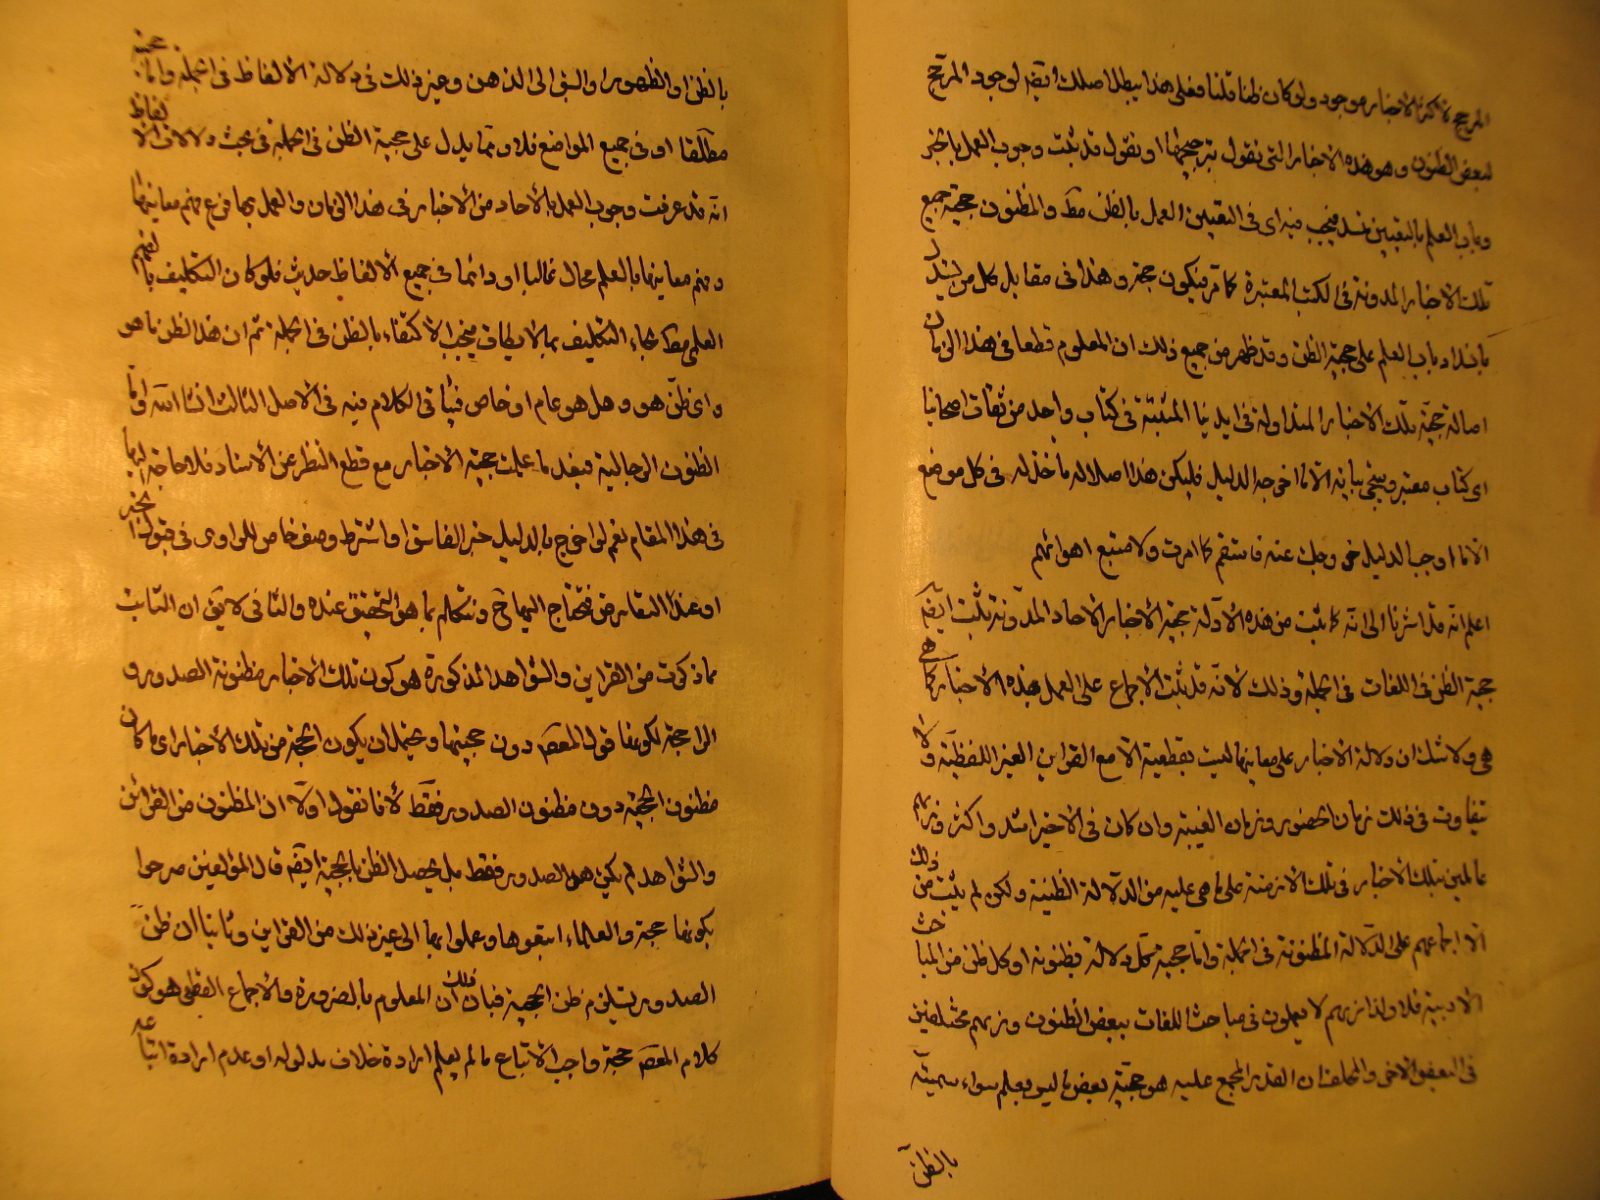 المرجح لا كثر الاخبار موجود ولو كان ظنا قلنا فعلى هذا يبطل اصلك ايضا لوجود المرجح
لبعض الظنون وهو هذه الاخبار التى نقول بترجيحها او نقول قد ثبت وجوب العمل بالخبر
وباب العلم بالتعيين منسد فيجب فيه اى فى التعيين العمل بالظن مط والمظنون حجية جميع
تلك الاخبار المدونة فى الكتب المعتبرة كما مر فيكون حجة وهذا فى مقابل كل من يستدل
بانسداد باب العلم على حجية الظن وقد ظهر من جميع ذلك ان المعلوم قطعا فى هذا الزمان
اصالة حجية تلك الاخبار المتداولة فى ايدينا المثبتة فى كتاب واحد من ثقات اصحابنا
اى كتاب معتبر وسيجئ بيانه الا ما اخرجه الدليل فليكن هذا اصلا له ماخذ له فى كل موضع
الا ما اوجب الدليل عنه فاستقم كما امرت ولا متبع اهوائهم
اعلم انه قد اشرنا الى انه كما ثبت من هذه الادلة حجية الاخبار الاحاد المدونة يثبت ايضا
حجية الظن فى اللغات فى الجملة وذلك لانه قد ثبت الاجماع على العمل بهذه الاخبار كما هى
هى ولا شك ان دلالة الاخبار على معانيها ليست بقطعية الا مع القراين الغير اللفظية ولا
يتفاوت فى ذلك زمان الحضور وزمان الغيبة وان كان فى الاخير اشد واكثر ونريهم
عاملين بتلك الاخبار فى تلك الازمنة على ما هى عليه من الدلالة الظنية ولكن لم يثبت من ذلك
الا اجماعهم على الدلالة المظنونة فى الجملة واما حجية كل دلالة مظنونة او كل ظن من المباحث
الادبية فلا ولذا نريهم لا يعملون فى مباحث اللغات ببعض الظنون ونريهم مختلفين
فى البعض الاخر والحاصل ان القدر المجمع عليه هو حجية بعض ما ليس بعلم سواء سميته
بالظن
بالظن او الظهور او السبق الى الذهن وغير ذلك فى دلالة الالفاظ فى الجملة واما حجيته
مطلقا او فى جميع المواضع فلا ومما يدل على حجية الظن فى الجملة فى بحث دلالات الالفاظ
انه قد عرفت وجوب العمل بالاحاد من الاخبار فى هذا الزمان والعمل بها فرع فهم معانيها
وفهم معانيها بالعلم محال غالبا او دائما فى جميع الالفاظ حديث فلو كان التكليف بالفهم
العلمى مط لجاء التكليف بما لا يطاق فيجب الاكتفاء بالظن فى الجملة ثم ان هذا الظن ما هو
واى ظن هو وهل هو عام او خاص فيأتى الكلام فيه فى الاصل الثالث انشا الله واما
الظنون الرجالية فبعد ما علمت حجية الاخبار مع قطع النظر عن الاسناد فلا حاجة اليها
فى هذا المقام نعم لو اخرج بالدليل خبر الفاسق او اشترط وصف خاص للراوى فى قبول الخبر
او عند التعارض فتحتاج اليها ح ونتكلم بما هو التحقيق عنده والثانى لا يق ان الثابت
مما ذكرت من القراين والشواهد المذكورة هو كون تلك الاخبار مظنونة الصدور و
الراجحة لكونها قول المعصوم دون حجيتها ويحتمل ان يكون الحجة من تلك الاخبار اى ما كان
مظنون الحجية دون مظنون الصدور فقط لانا نقول اولا ان المظنون من القرائن
والشواهد لم يكن هو الصدور فقط بل يحصل الظن بالحجية ايضا فان المؤلفين صرحوا
بكونها حجة والعلماء اتبعوها وعملوا بها الى غير ذلك من القراين وثانيا ان ظن
الصدور يستلزم ظن الحجية فبان ذلك ان المعلوم بالضرورة والاجماع القطعى هو كون
كلام المعصوم حجة واجب الاتباع ما لم يعلم ارادة خلاف مدلوله او عدم ارادة اتباعه